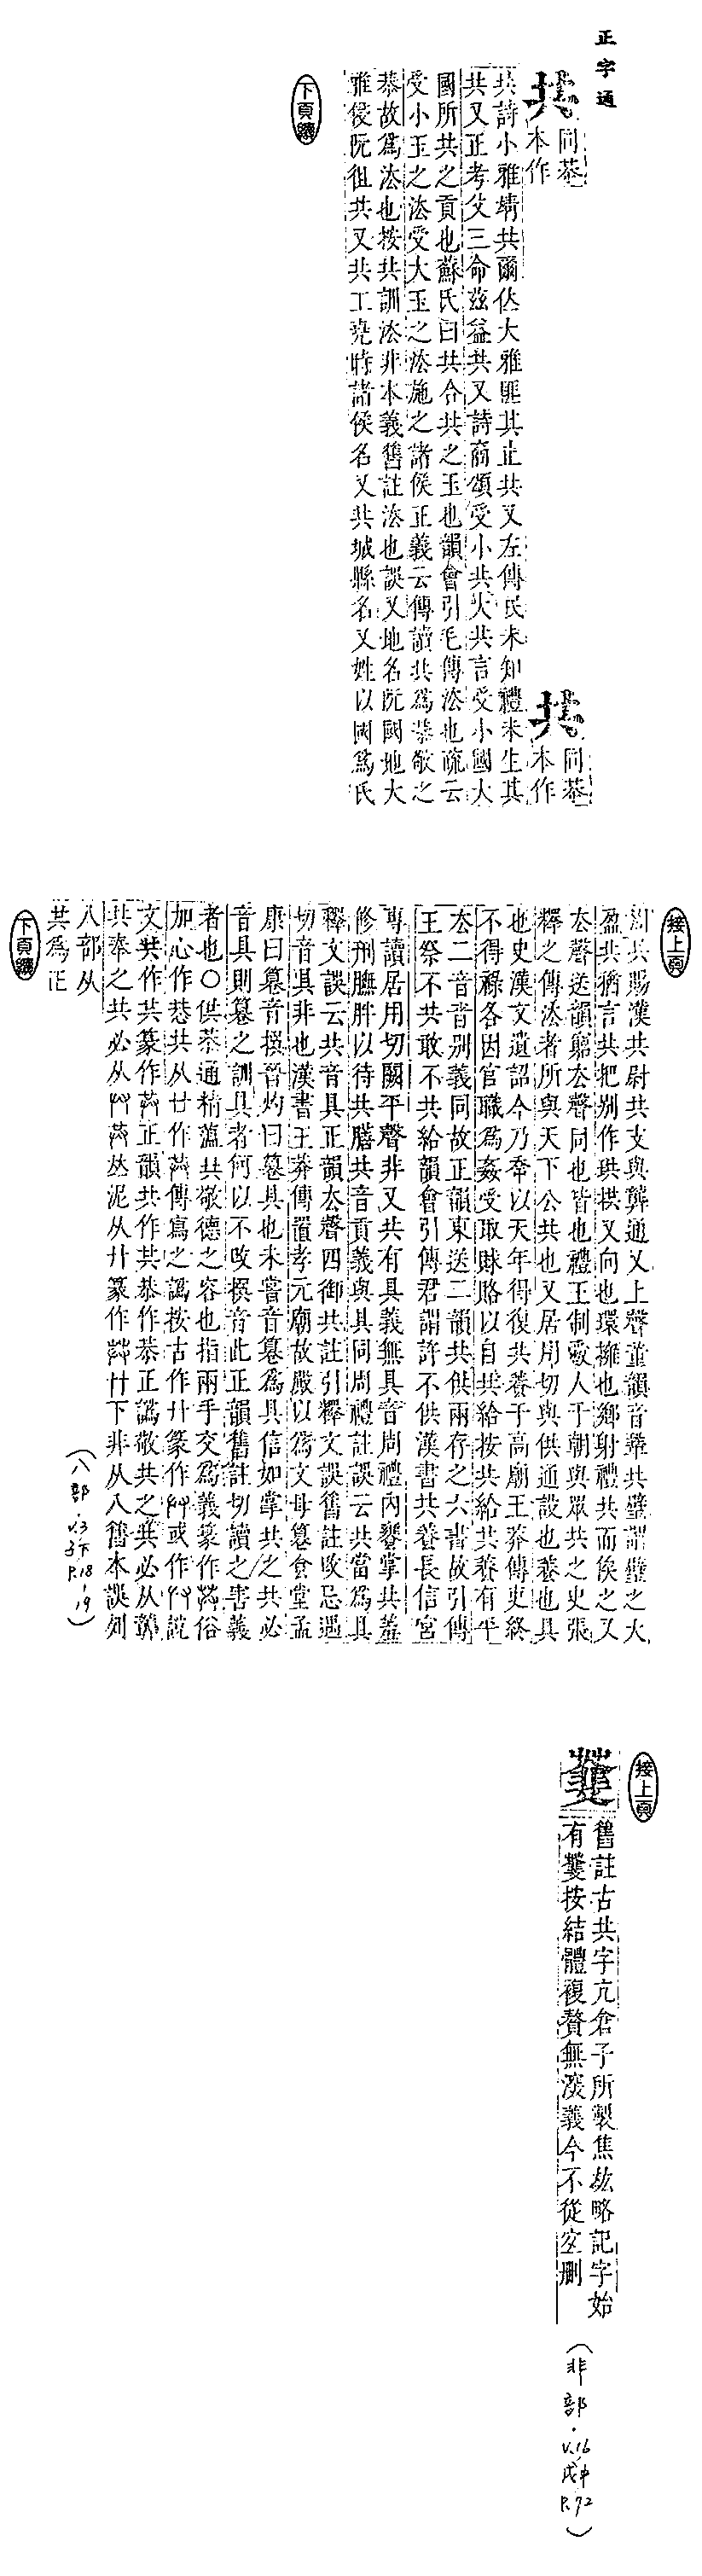 正字通
共
同恭
本作
共詩小雅靖共爾位大雅匪其止共又左傳民未知禮未生其
共又正考父三命茲益共又詩商頌受小共大共言受小國大
國所共之貢也蘇氏曰共合共之玉也韻會引毛傳法也疏云
受小玉之法受大玉之法施之諸侯正義云傳讀共為恭敬之
恭故為法也按共訓法非本義舊註法也誤又地名阮國地大
雅侵阮徂共又共工堯時諸侯名又共城縣名又姓以國為氏
下頁續
共
同恭
本作
接上頁
共賜漢共尉共友與龔通又上聲董韻音拲共璧謂璧之大
盈共猶言共把別作珙拱又向也環擁也鄉射禮共而俟之又
去聲送韻窮去聲同也皆也禮王制爵人于朝與眾共之史張
釋之傳法者所與天下公共也又居用切與供通設也養也具
也史漢文遺詔今乃幸以天年得復共養于高廟王莽傳吏終
不得祿各因官職為姦受取賕賂以自共給按共給共養有平
去二音音別義同故正韻東送二韻共供兩存之六書故引傳
王祭不共敢不共給韻會引傳君謂許不供漢書共養長信宮
專讀居用切闕平聲非又共有具義無具音周禮內饔掌共羞
修刑膴胖以待共膳共音貢義與具同周禮註誤云共當為具
釋文誤云共音具正韻去聲四御共註引釋文誤舊註改忌遇
切音具非也漢書王莽傳置孝元廟故殿以為文母篹食堂孟
康曰篹音撰晉灼曰篹具也未嘗音篹為具信如掌共之共必
音具則篹之訓具者何以不改撰音此正韻舊註切讀之害義
者也○供恭通精薀共敬德之容也指兩手交為義篆作𠔏俗
加心作恭共从廿作𠔏傳寫之譌按古作廾篆作𠬞或作𠬞說
文共作共篆作𠔏正韻共作共恭作恭正譌敬共之共必从龔
共奉之共必从𠬞𠔏丛泥从廾篆作𠬞廿下非从八舊本誤列
八部从
共為正
下頁續
(八部.V.3子下P.18-19)
接上頁
舊註古共字亢倉子所製焦竑略記字始
有䢼按結體複贅無深義今不從宜刪
(非部.V.16戌中P.72)